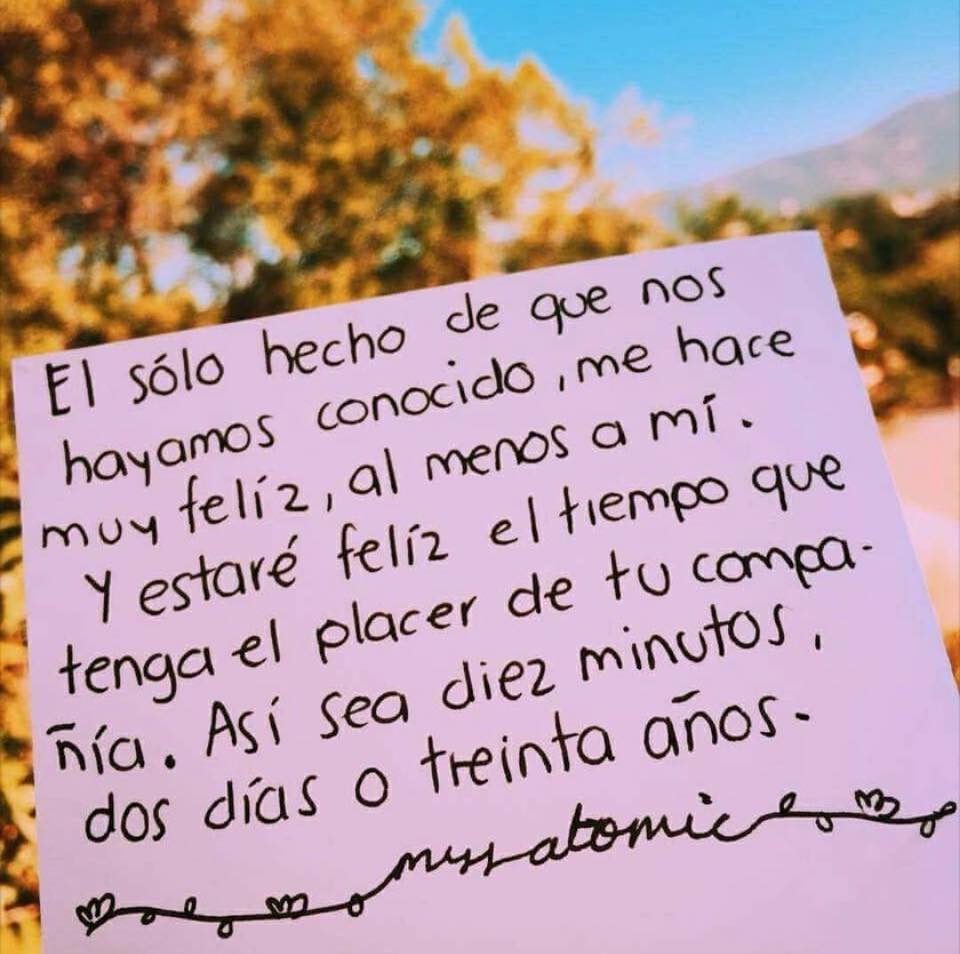 El sólo hecho de que nos
hayamos conocido, me hace
muy felíz, al menos a mí.
Y estaré felíz el tiempo que
tenga el placer de tu compa-
ñía. Así sea diez minutos,
dos días o treinta años.
atomic